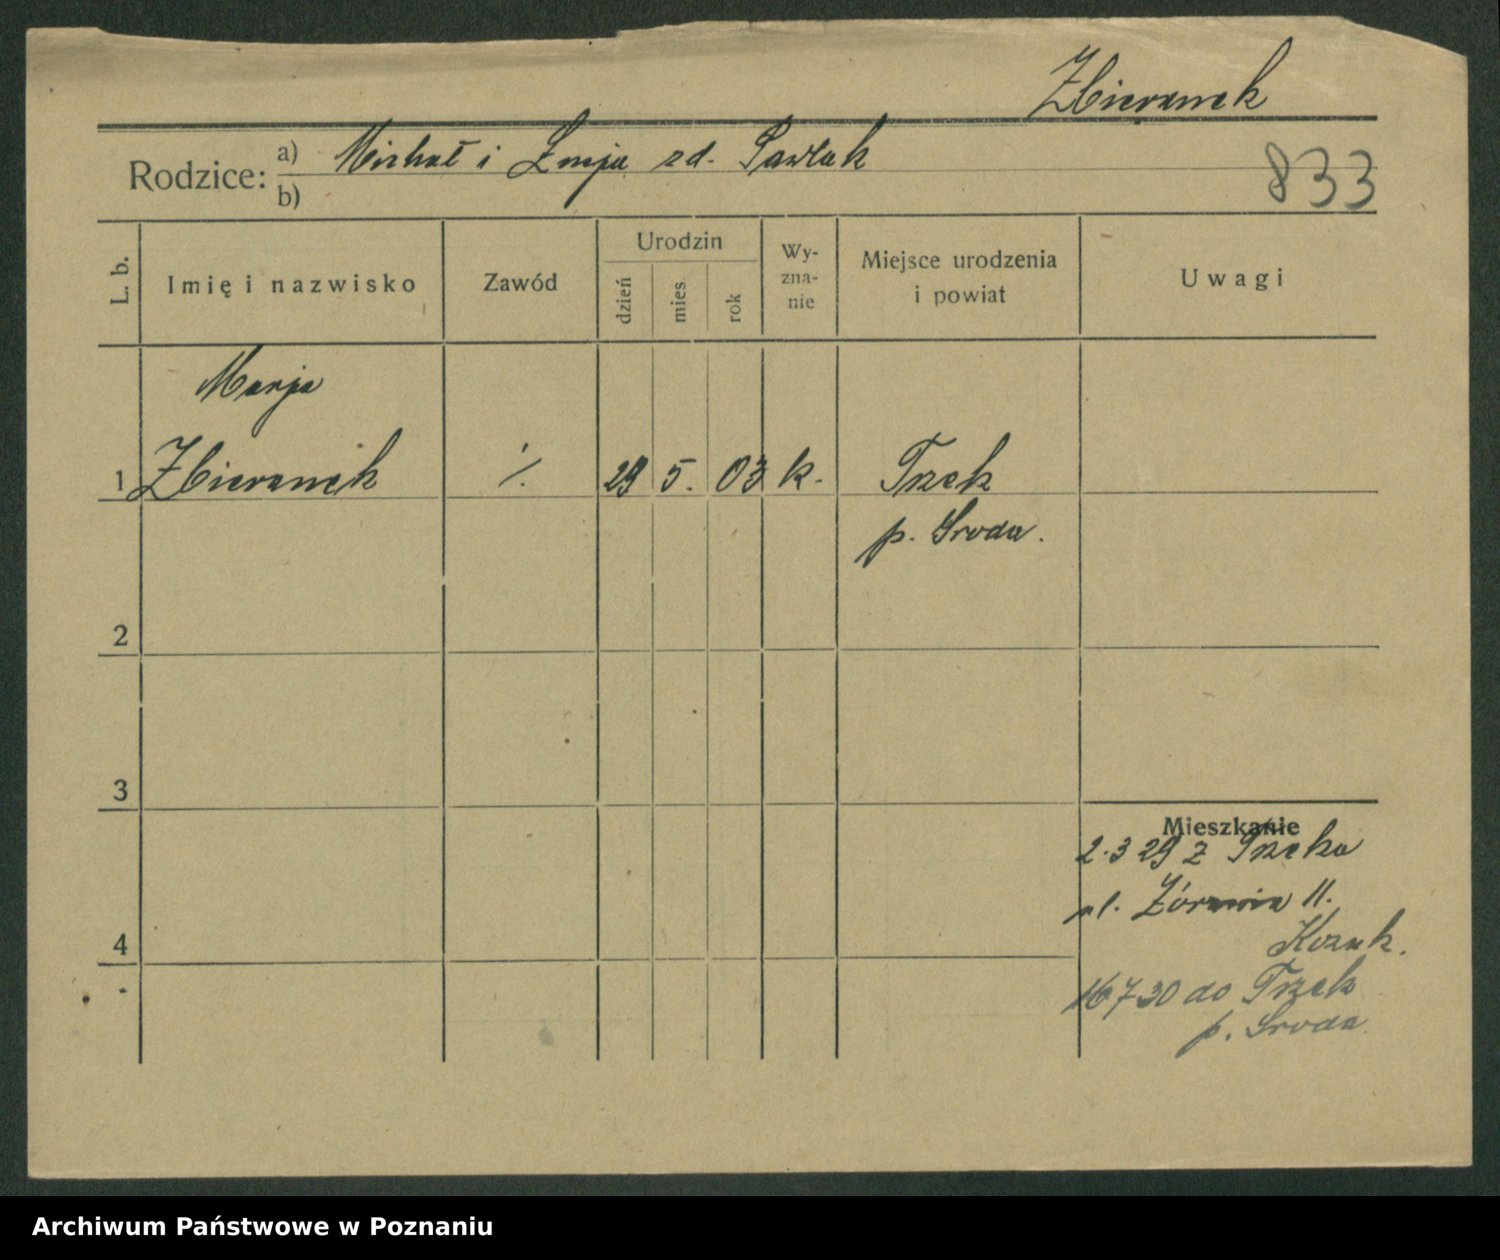 Zbieranek
Rodzice: a) Michał i Zofja zd. Pawlak
b)
833
L. b.
Imię i nazwisko
Zawód
Urodzin
dzień
mies.
rok
Wy-
zna-
nie
Miejsce urodzenia
i powiat
Uwagi
Marja
1 Zbieranek ٪ 29 5. 03 k. Trzek
p. Środa.
2
3
4
Mieszkanie
2.3 29 z Trzeka
ul. Żórawia 11.
Kozak.
16 7 30 do Trzek
p. Środa
Archiwum Państwowe w Poznaniu